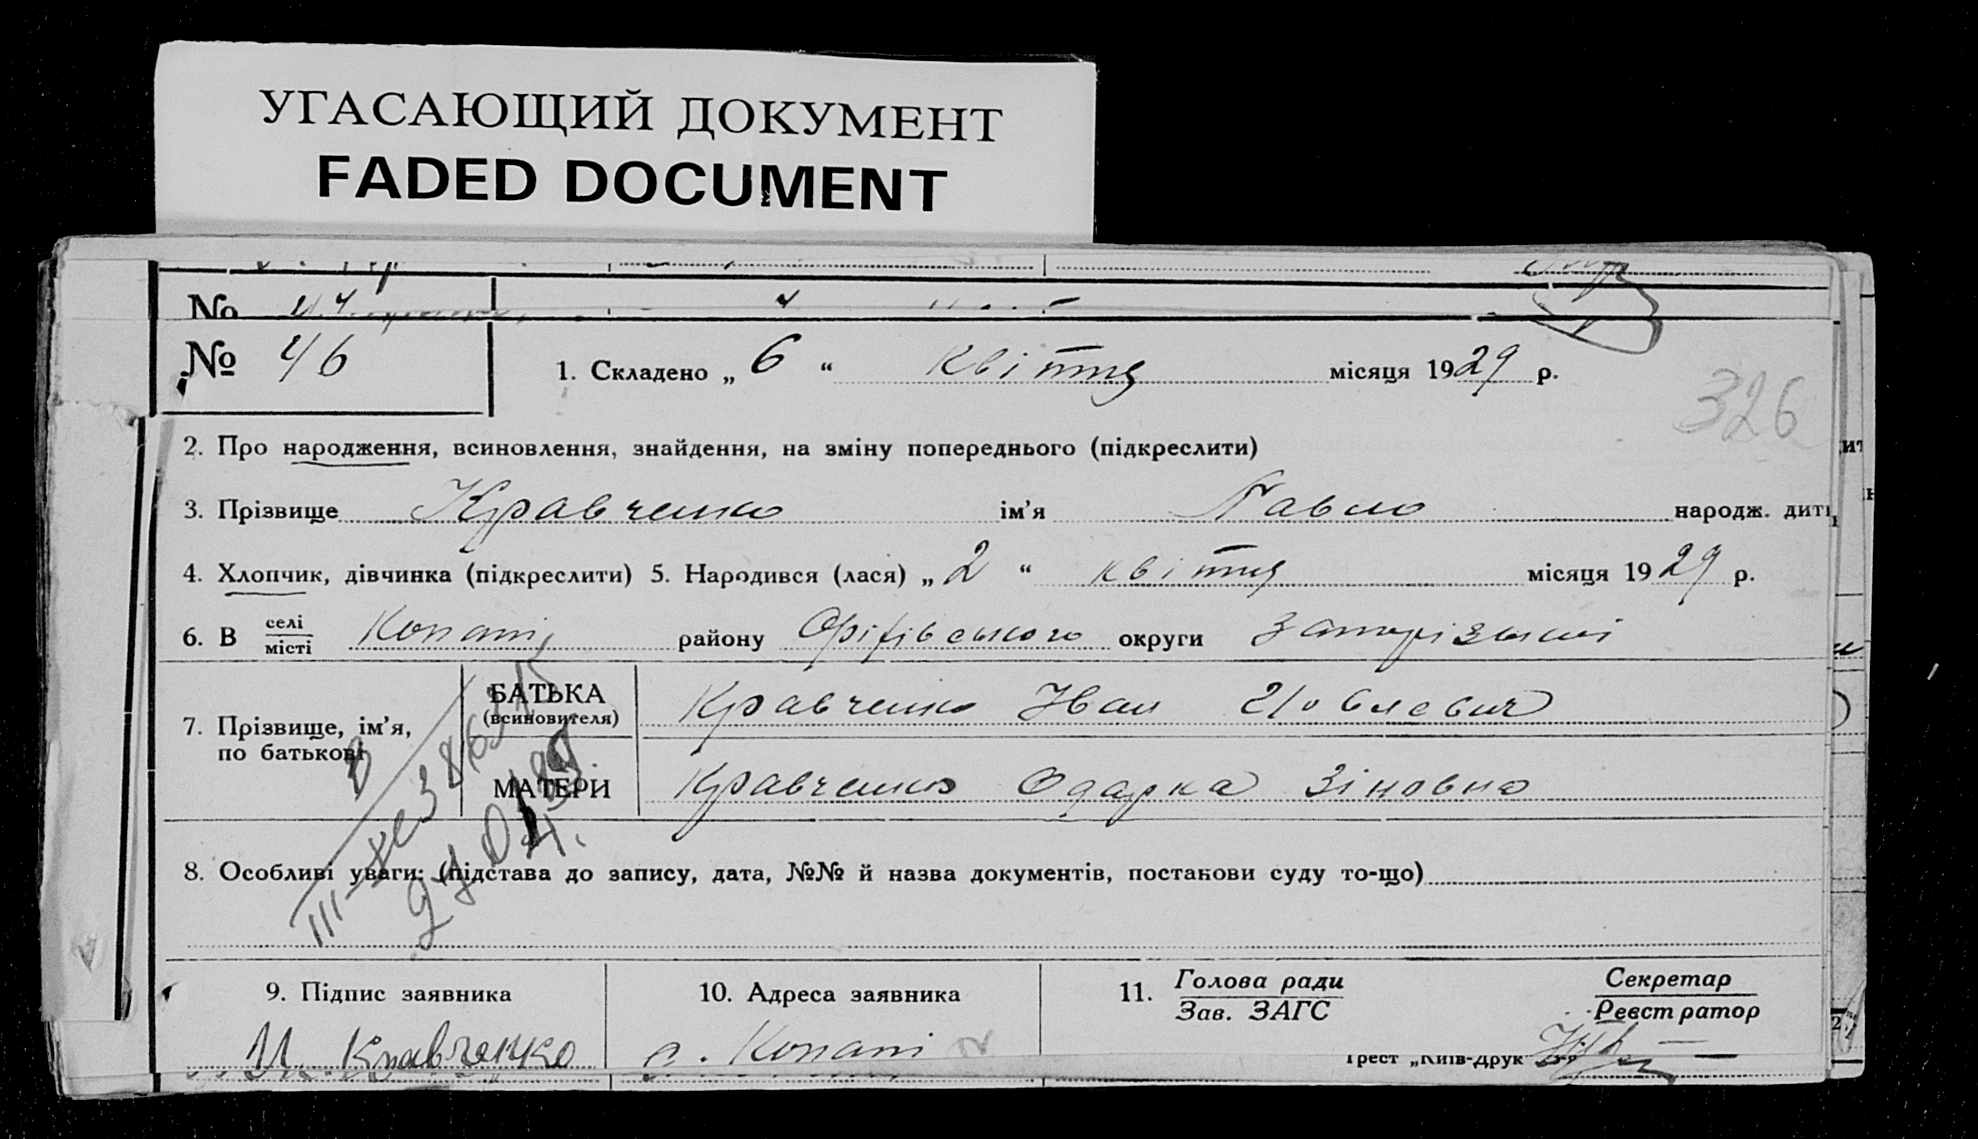 УГАСАЮЩИЙ ДОКУМЕНТ
FADED DOCUMENT
№
№ 46
1. Складено „ 6 “ квітня місяця 1929 р.
326
2. Про народження, всиновлення, знайдення, на зміну попереднього (підкреслити)
3. Прізвище Кравченко ім’я Павло народж. дит
4. Хлопчик, дівчинка (підкреслити) 5. Народився (лася) „ 2 “ квітня місяця 1929 р.
6. В селі/місті Копані району Оріхівського округи Запорізької
7. Прізвище, ім’я, по батькові
БАТЬКА (всиновителя) Кравченко Іван
МАТЕРИ Кравченко Одарка Зіновна
8. Особливі уваги: (підстава до запису, дата, №№ й назва документів, постанови суду то-що)
9. Підпис заявника
10. Адреса заявника
11. Голова ради / Зав. ЗАГС
Секретар / Реєстратор
И. Кравченко
с. Копані
Трест „Київ-друк